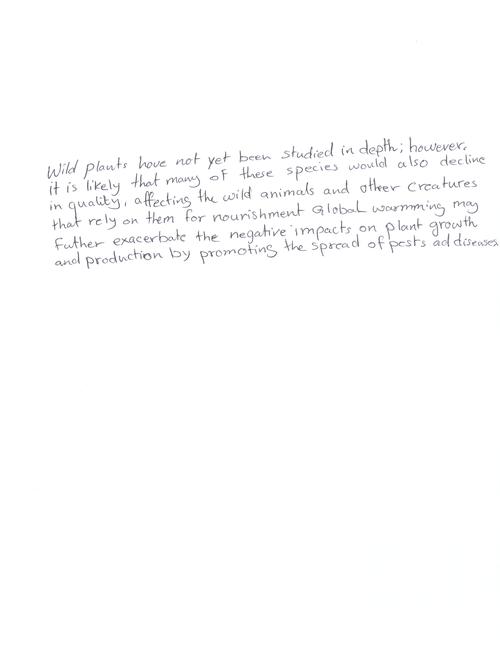 Wild plants have not yet been studied in depth; however,
it is likely that many of these species would also decline
in quality, affecting the wild animals and other creatures
that rely on them for nourishment Global warmming may
futher exacerbate the negative impacts on plant growth
and production by promoting the spread of pests ad diseases